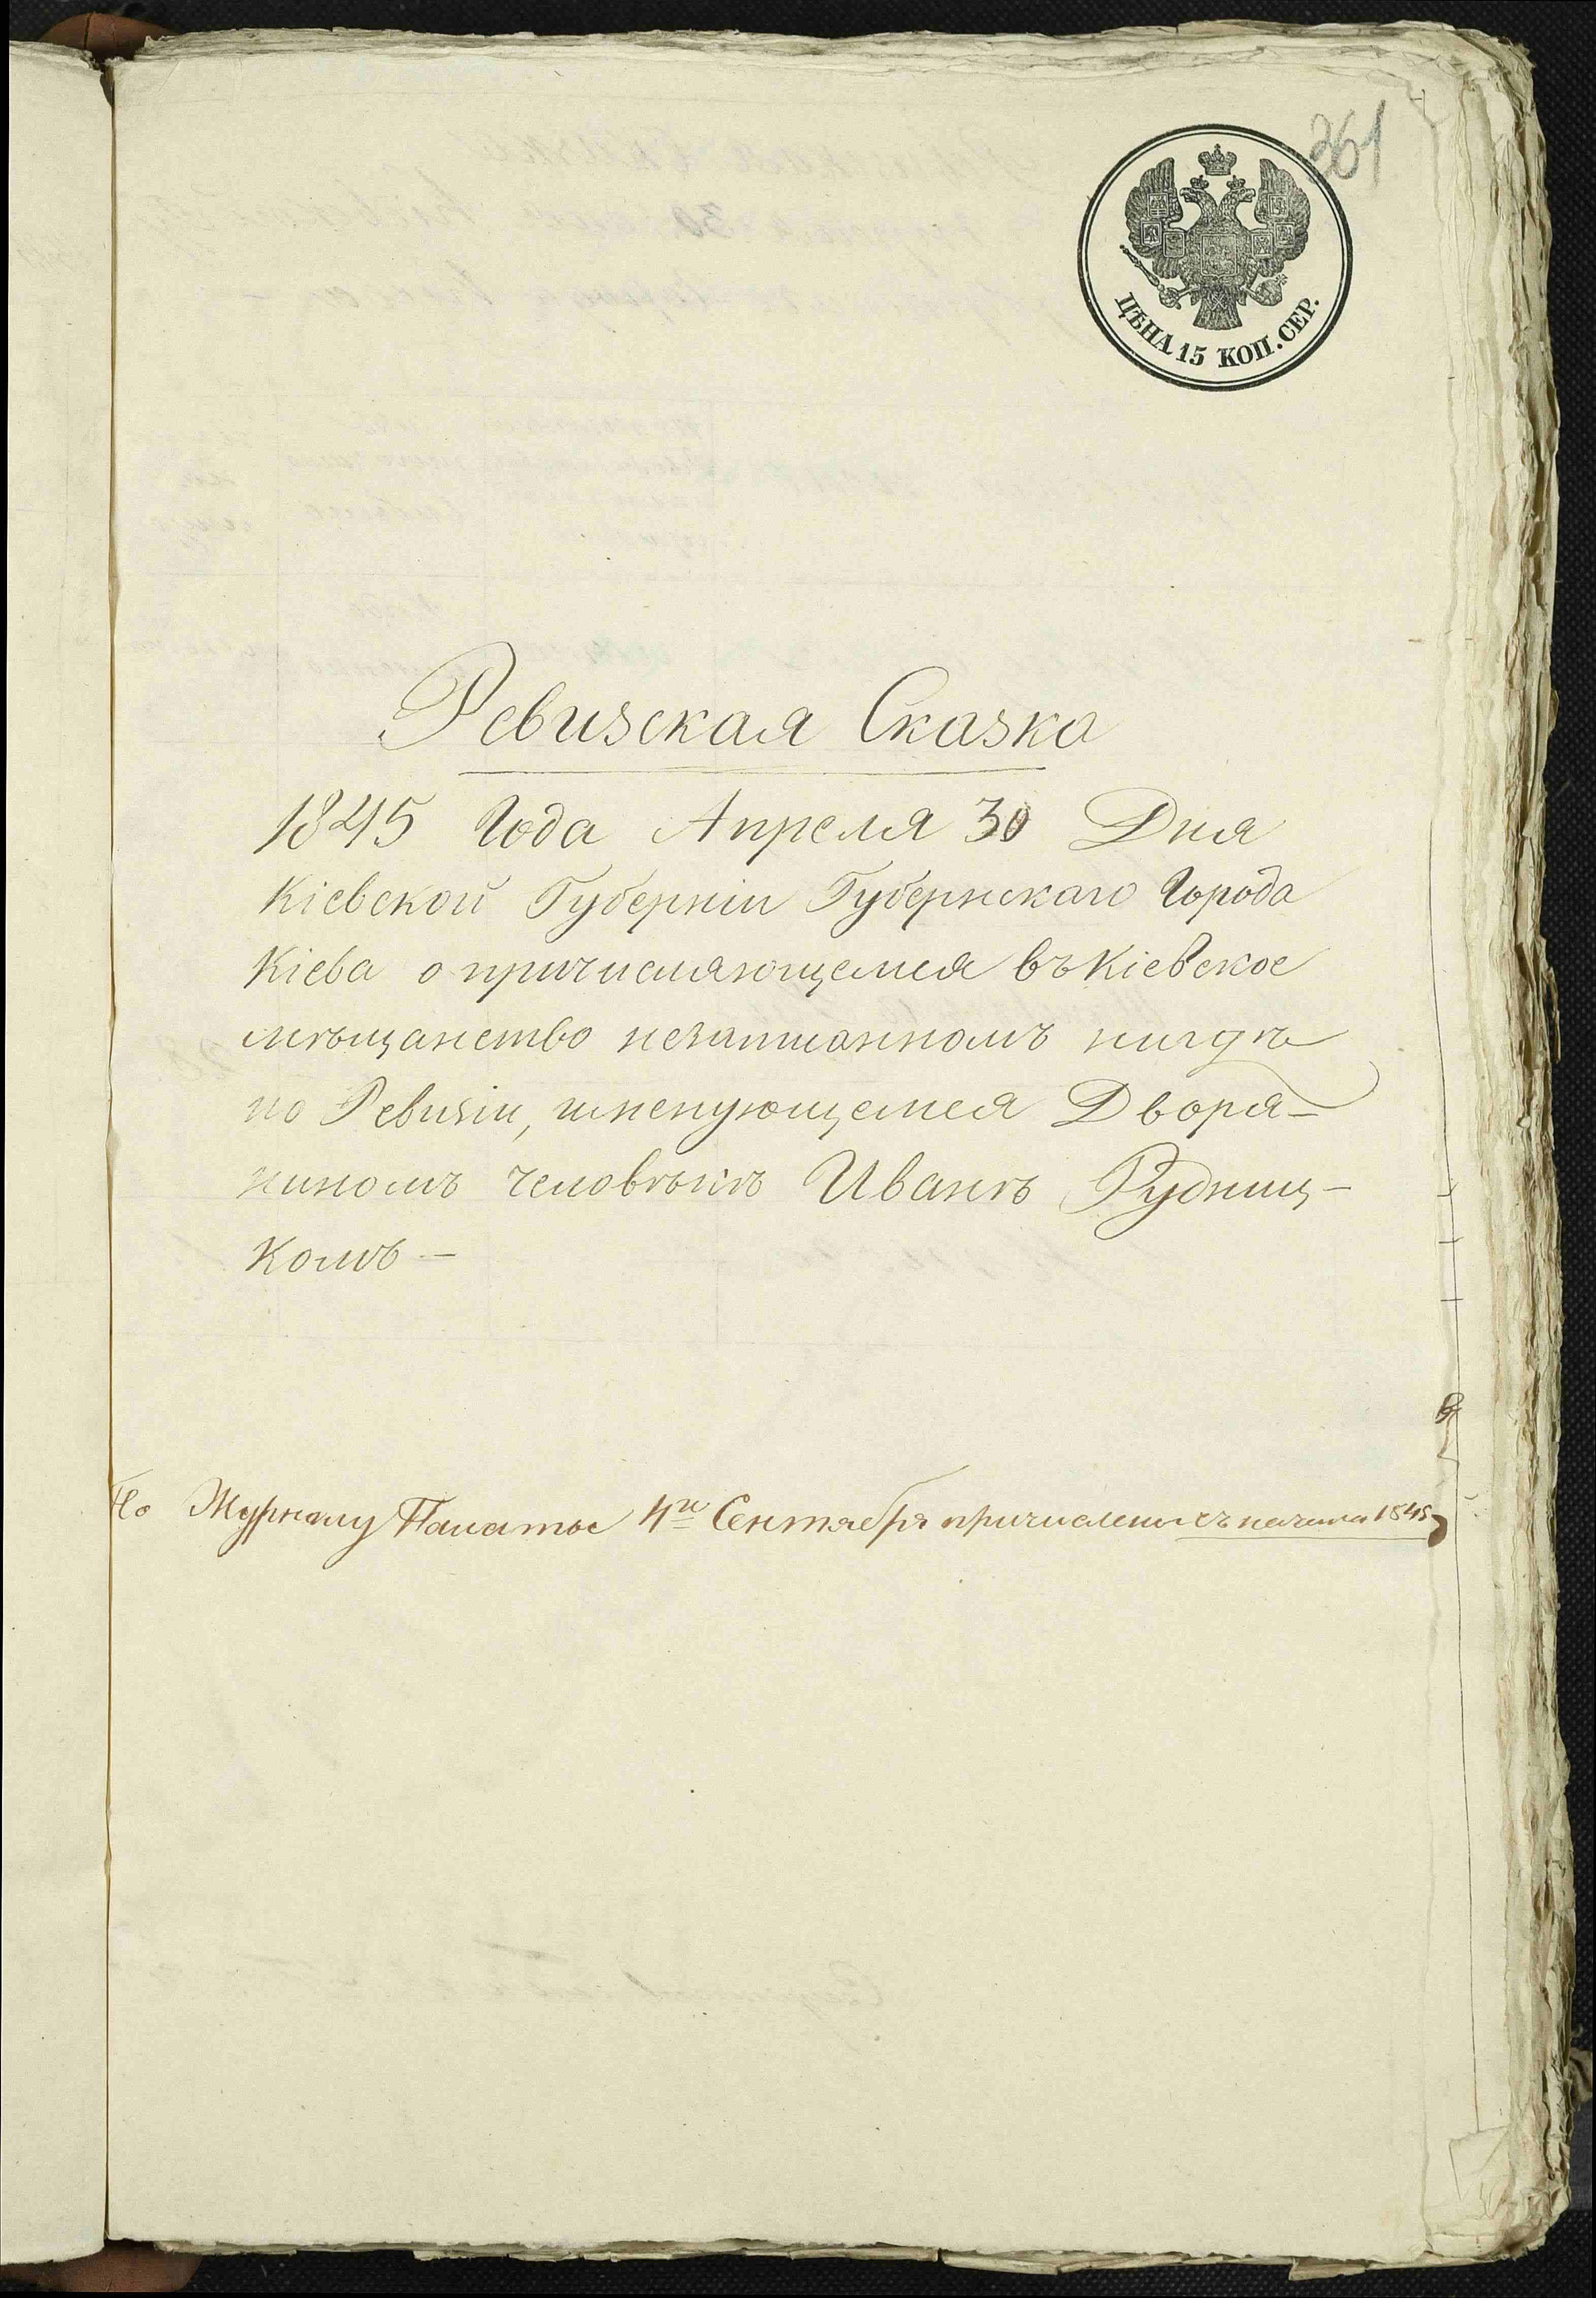 361
ЦѢНА 15 КОП. СЕР.
Ревизская Сказка
1845 Года Апреля 30 Дня
Кіевской Губерніи Губернскаго Города
Кіева о причисляющемся въ Кіевское
мѣщанство незаписанномъ нигдѣ
по Ревизіи, именующемся Дворя-
ниномъ человѣкѣ Иванѣ Рудниц-
комъ —
По Журналу Палаты 4го Сентября причислены съ начала 1845